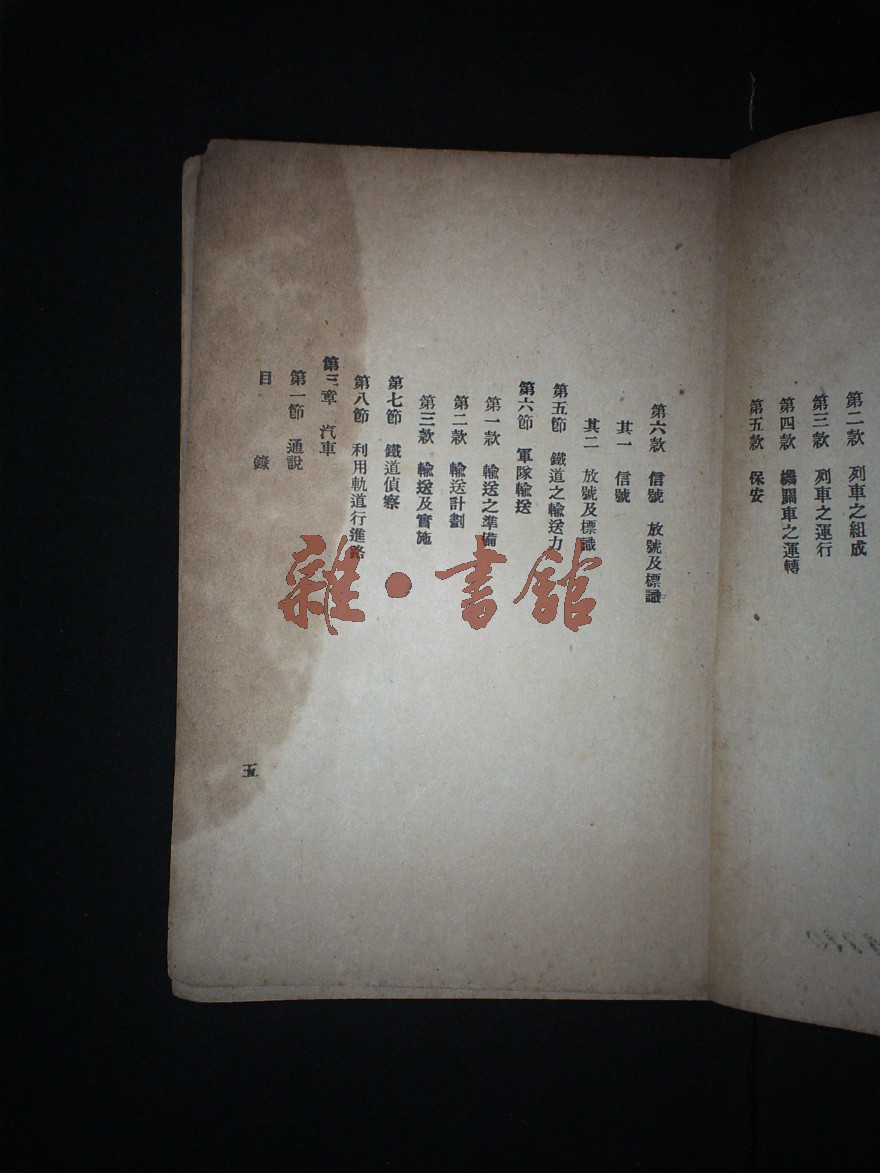 第二款　列車之組成
第三款　列車之運行
第四款　機關車之運轉
第五款　保安
第六款　信號　放號及標識
其一　信號
其二　放號及標識
第五節　鐵道之輸送力
第六節　軍隊輸送
第一款　輸送之準備
第二款　輸送計劃
第三款　輸送及實施
第七節　鐵道偵察
第八節　利用軌道行進路
第三章　汽車
第一節　通說
目　錄
五
雜·書館